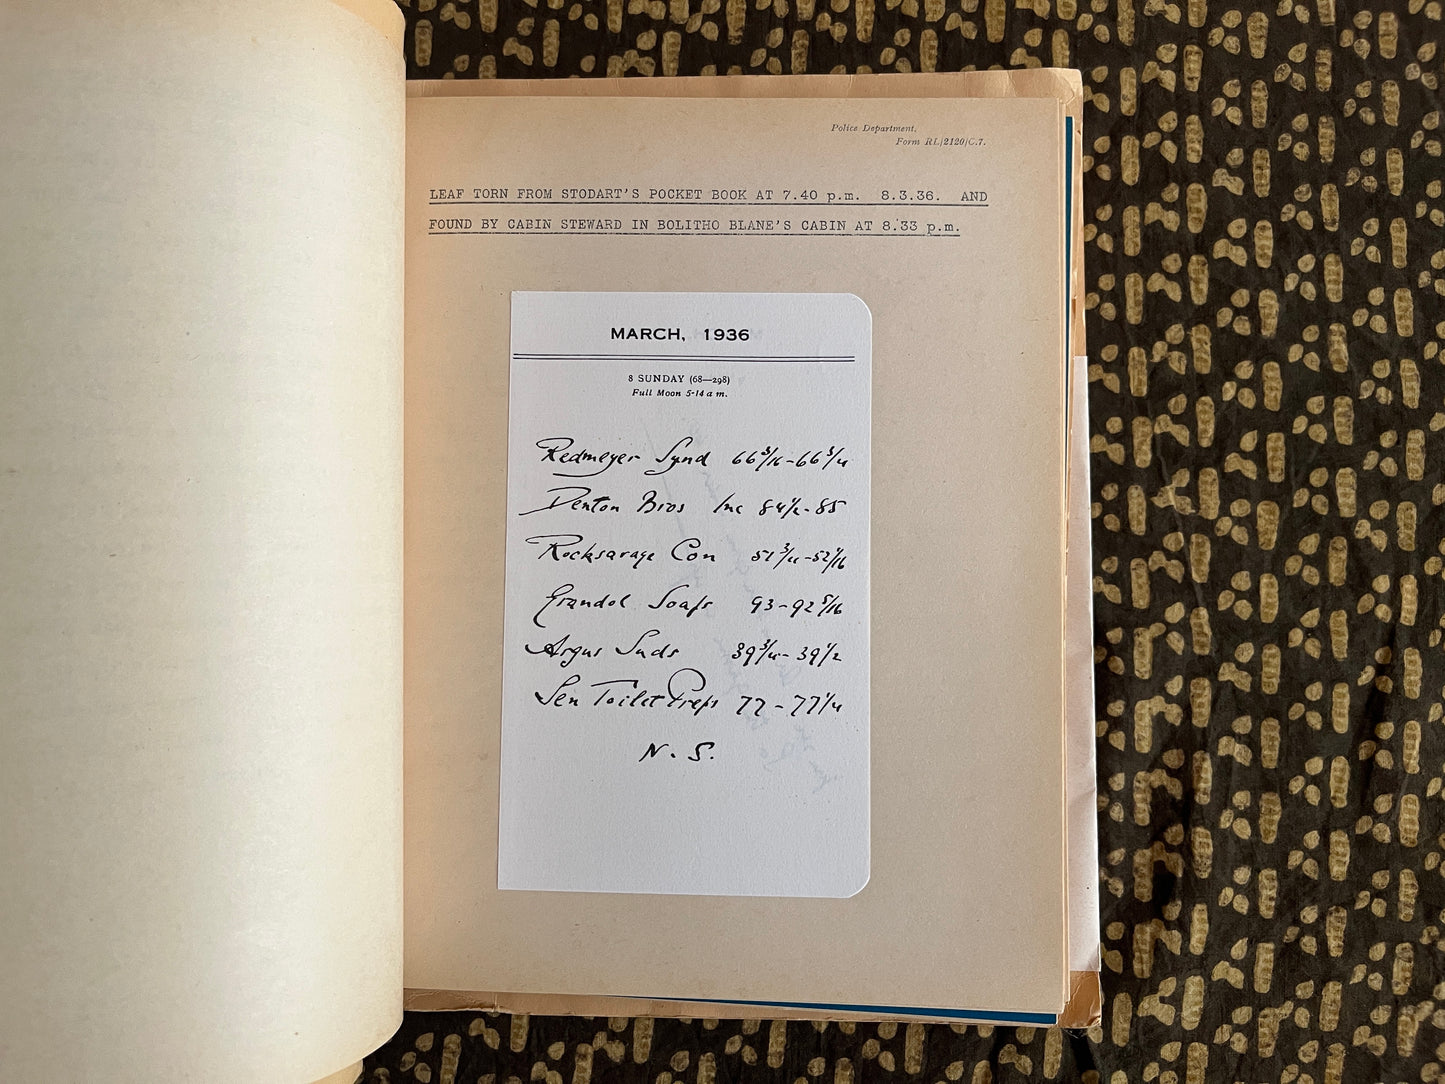 Police Department.
Form RL/2120/C.7.
LEAF TORN FROM STODART'S POCKET BOOK AT 7.40 p.m. 8.3.36. AND
FOUND BY CABIN STEWARD IN BOLITHO BLANE'S CABIN AT 8.33 p.m.
MARCH, 1936
8 SUNDAY (68—298)
Full Moon 5·14 a m.
Redmeyer Synd 66 3/16 - 66 3/4
Denton Bros Inc 84 1/2 - 85
Rocksavage Con 51 3/4 - 52 1/16
Grandol Soaps 93 - 92 5/16
Argus Suds 39 3/4 - 39 1/2
Sen Toilet Preps 77 - 77 1/4
N. S.